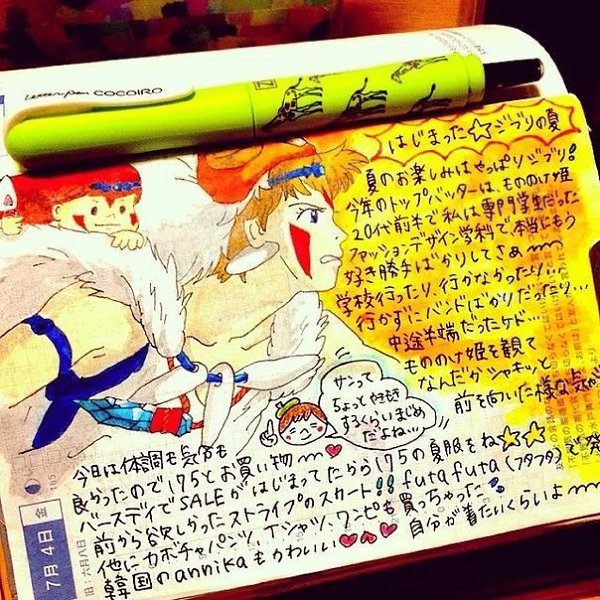 Letter pen COCOIRO
はじまった☆ジブリの夏
夏のお楽しみはやっぱりジブリ!
今年のトップバッターは、もののけ姫
20代前半で私は専門学生だった
ファッションデザイン学科で本当にもう
好き勝手ばかりしてさぁ
学校行ったり、行かなかったり…
行かずにバンドばかりだったり…
中途半端だったケド…
もののけ姫を観て
なんだかシャキッと
前を向いた様な気が
サンって
ちょっとやきもち
するくらいまじめ
だよね…
今日は体調も気分も
良かったので175とお買い物♥
バースデイでSALEがはじまってたから175の夏服をね☆☆
前から欲しかったストライプのスカート!!futafuta(フタフタ)で発
他にカボチャパンツ、Tシャツ、ワンピも買っちゃった
韓国のannikaもかわいい♥♥♥ 自分が着たいくらいよ
7月4日 金
旧:六月八日